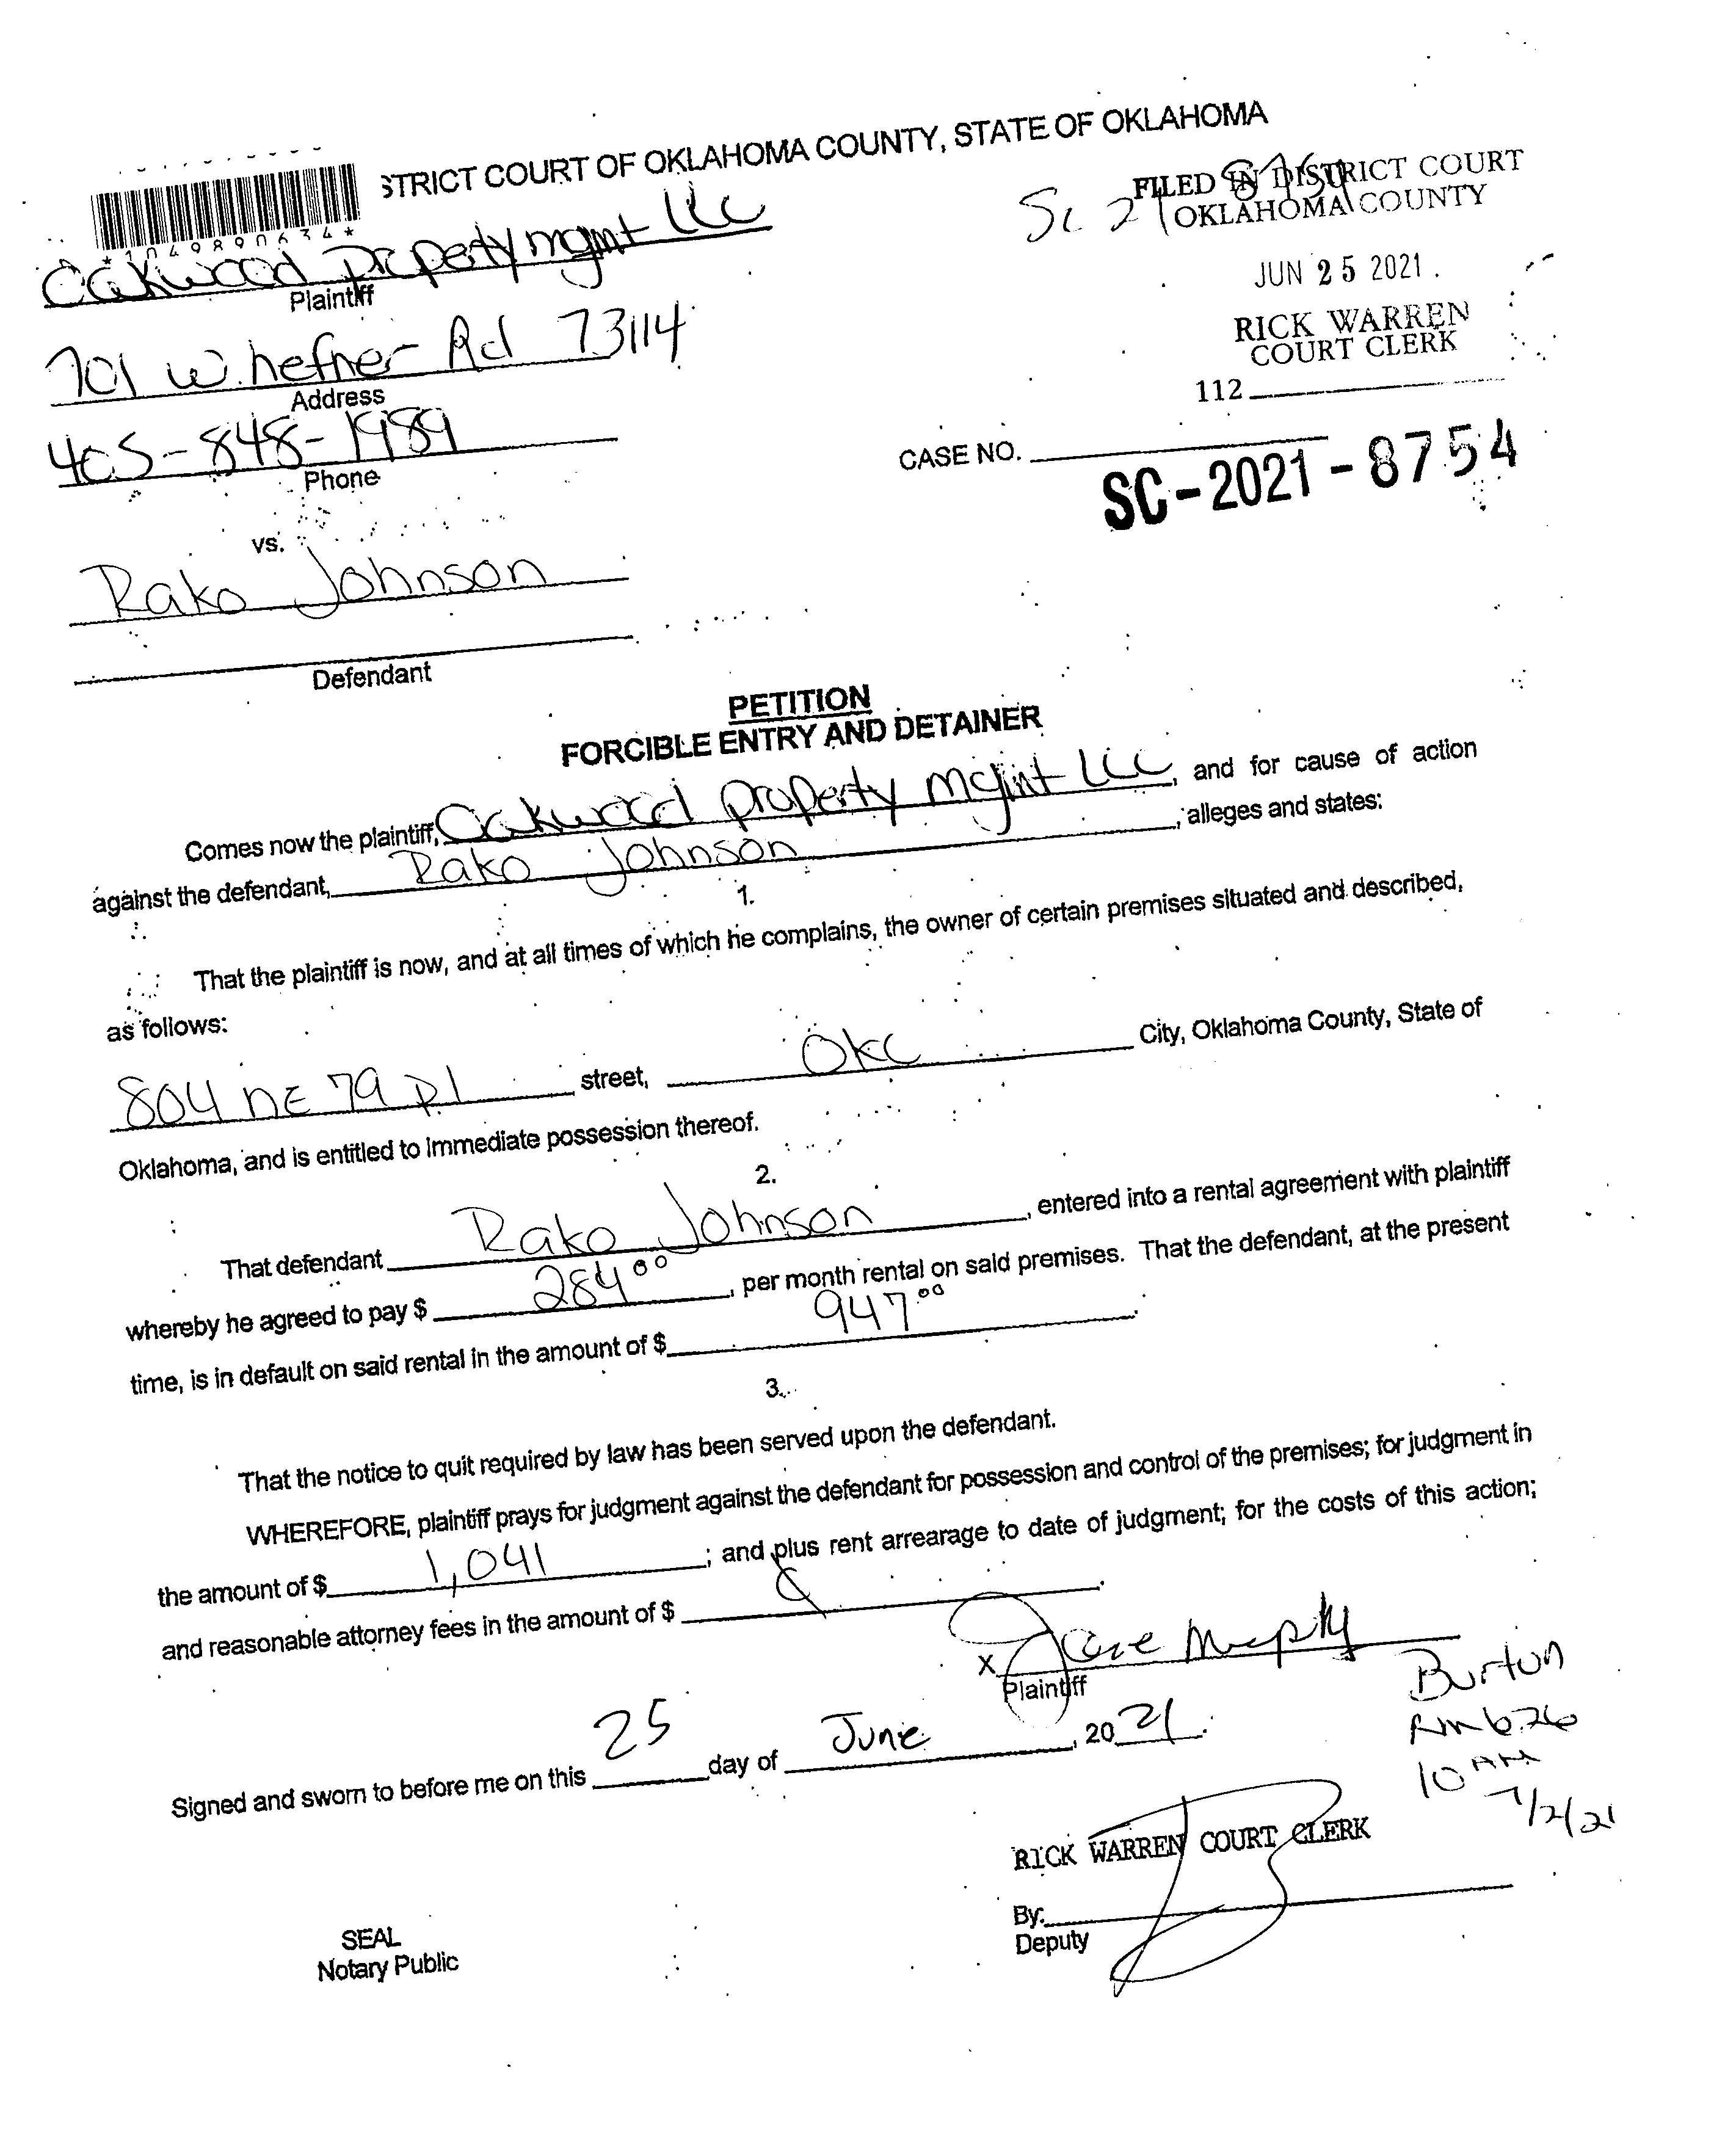 STRICT COURT OF OKLAHOMA COUNTY, STATE OF OKLAHOMA
*1049890634*
SC 21 8754
FILED IN DISTRICT COURT
OKLAHOMA COUNTY
JUN 25 2021
RICK WARREN
COURT CLERK
112
Oakwood property mgmt LLC
Plaintiff
701 W. hefner Rd 73114
Address
405-848-1989
Phone
CASE NO.
SC-2021-8754
vs.
Rako Johnson
Defendant
PETITION
FORCIBLE ENTRY AND DETAINER
Comes now the plaintiff, Oakwood property mgmt LLC, and for cause of action
against the defendant, Rako Johnson, alleges and states:
1.
That the plaintiff is now, and at all times of which he complains, the owner of certain premises situated and described,
as follows:
804 NE 79 Pl street, OKC City, Oklahoma County, State of
Oklahoma, and is entitled to immediate possession thereof.
2.
That defendant Rako Johnson, entered into a rental agreement with plaintiff
whereby he agreed to pay $ 284.00, per month rental on said premises. That the defendant, at the present
time, is in default on said rental in the amount of $ 947.00.
3.
That the notice to quit required by law has been served upon the defendant.
WHEREFORE, plaintiff prays for judgment against the defendant for possession and control of the premises; for judgment in
the amount of $ 1,041; and plus rent arrearage to date of judgment; for the costs of this action;
and reasonable attorney fees in the amount of $
X
Plaintiff
Signed and sworn to before me on this 25 day of June, 2021.
Burton
Rm 626
10 AM
7/2/21
RICK WARREN COURT CLERK
By:
Deputy
SEAL
Notary Public